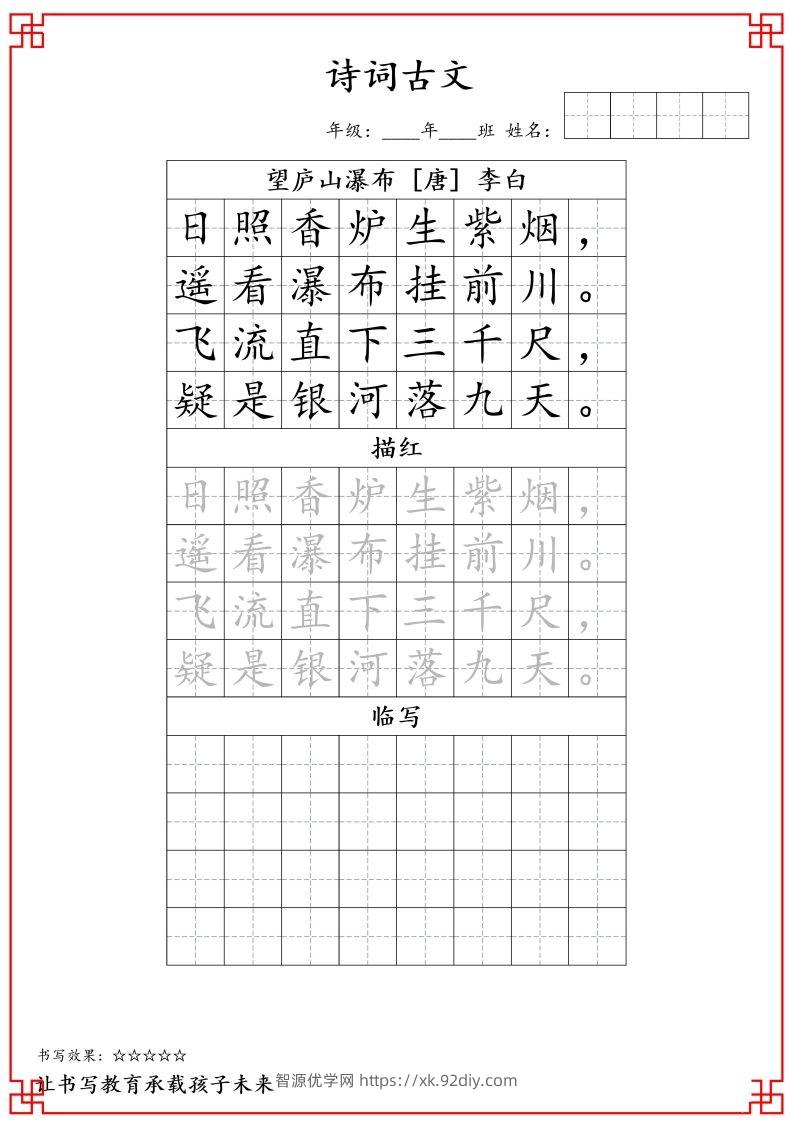 诗词古文
年级：____年____班 姓名：
望庐山瀑布［唐］李白
日照香炉生紫烟，
遥看瀑布挂前川。
飞流直下三千尺，
疑是银河落九天。
描红
日照香炉生紫烟，
遥看瀑布挂前川。
飞流直下三千尺，
疑是银河落九天。
临写
书写效果：☆☆☆☆☆
让书写教育承载孩子未来
智源优学网 https://xk.92diy.com